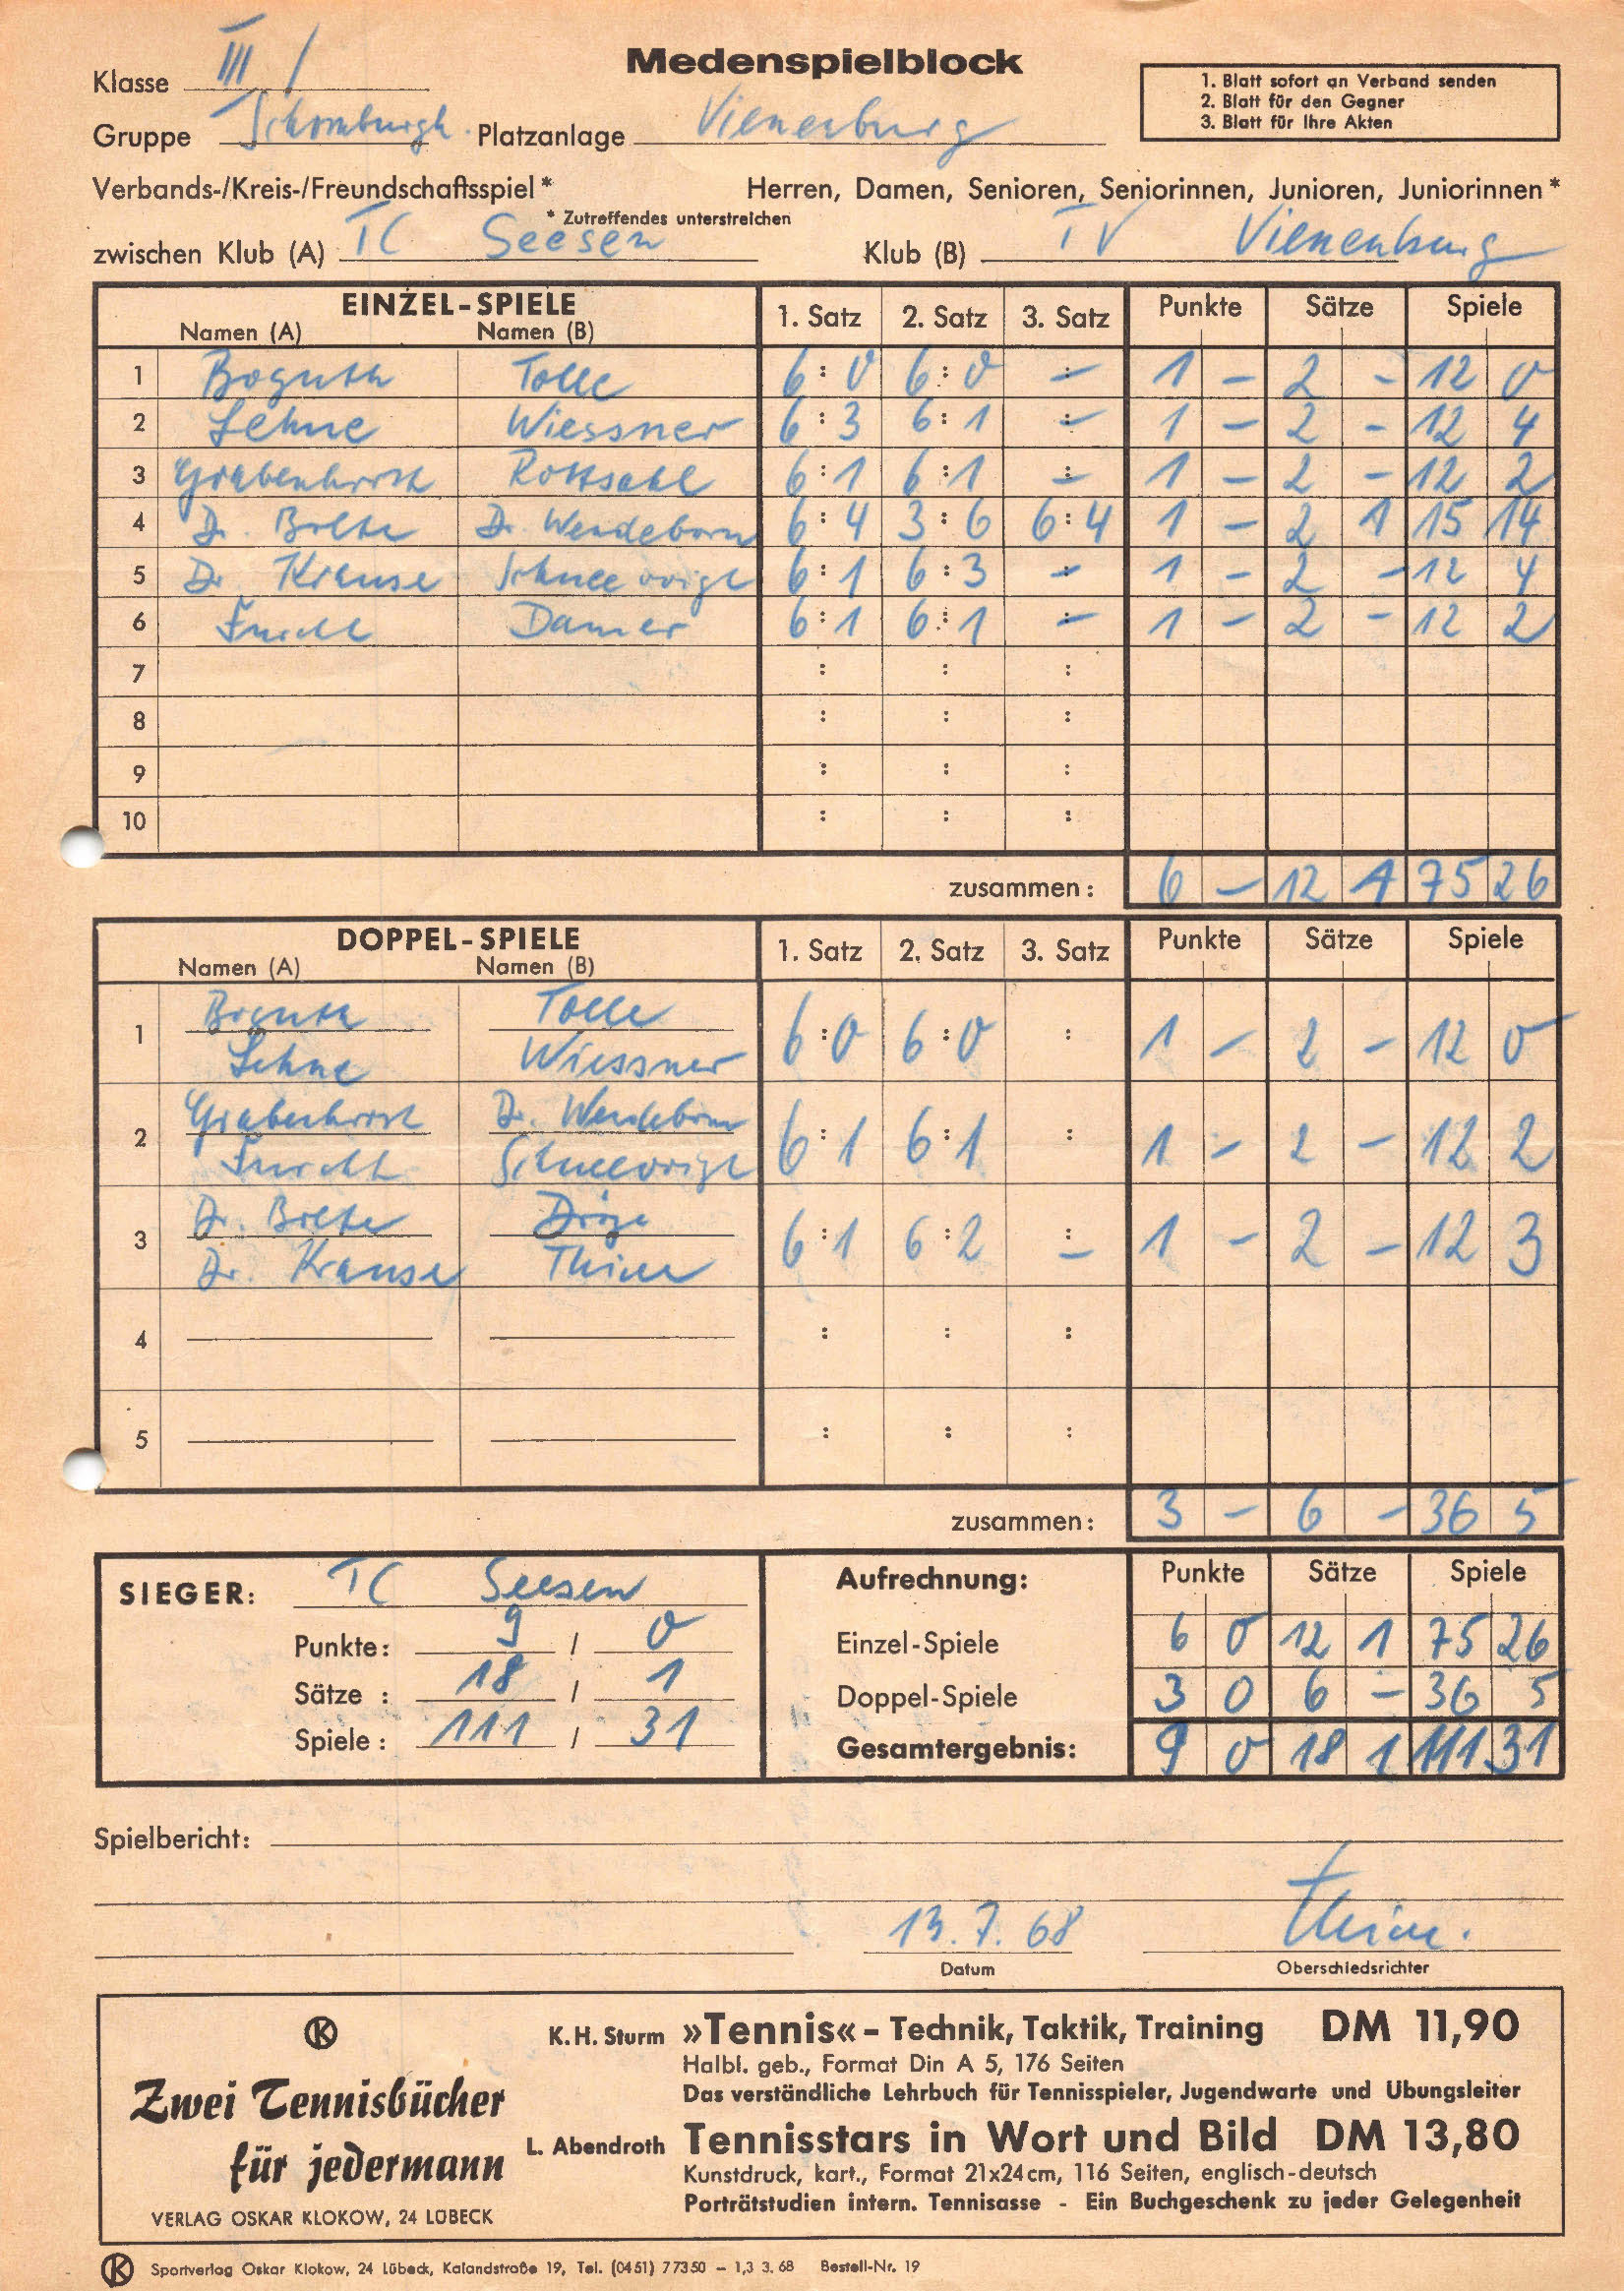 Medenspielblock
Klasse III /
1. Blatt sofort an Verband senden
2. Blatt für den Gegner
3. Blatt für Ihre Akten
Gruppe Schomburgk Platzanlage Vienenburg
Verbands-/Kreis-/Freundschaftsspiel * Herren, Damen, Senioren, Seniorinnen, Junioren, Juniorinnen *
* Zutreffendes unterstreichen
zwischen Klub (A) TC Seesen Klub (B) TV Vienenburg
EINZEL-SPIELE 1. Satz 2. Satz 3. Satz Punkte Sätze Spiele
Namen (A) Namen (B)
1 Boguth Tolle 6:0 6:0 - 1 - 2 - 12 0
2 Lehne Wiessner 6:3 6:1 - 1 - 2 - 12 4
3 Grabenhorst Rottsahl 6:1 6:1 - 1 - 2 - 12 2
4 Dr. Bolte Dr. Wendeborn 6:4 3:6 6:4 1 - 2 1 15 14
5 Dr Krause Schneevoigt 6:1 6:3 - 1 - 2 - 12 4
6 Furcht Damer 6:1 6:1 - 1 - 2 - 12 2
7 : : :
8 : : :
9 : : :
10 : : :
zusammen: 6 - 12 1 75 26
DOPPEL-SPIELE 1. Satz 2. Satz 3. Satz Punkte Sätze Spiele
Namen (A) Namen (B)
Boguth Tolle
1 6:0 6:0 : 1 - 2 - 12 0
Lehne Wiessner
Grabenhorst Dr. Wendeborn
2 6:1 6:1 : 1 - 2 - 12 2
Furcht Schneevoigt
Dr. Bolte
3 6:1 6:2 - 1 - 2 - 12 3
Dr. Krause Thime
4 : : :
5 : : :
zusammen: 3 - 6 - 36 5
SIEGER: TC Seesen Aufrechnung: Punkte Sätze Spiele
Punkte: 9 / 0 Einzel-Spiele 6 0 12 1 75 26
Sätze : 18 / 1 Doppel-Spiele 3 0 6 - 36 5
Spiele : 111 / 31 Gesamtergebnis: 9 0 18 1 111 31
Spielbericht:
13.7.68 Thime.
Datum Oberschiedsrichter
K
K. H. Sturm »Tennis« – Technik, Taktik, Training DM 11,90
Halbl. geb., Format Din A 5, 176 Seiten
Das verständliche Lehrbuch für Tennisspieler, Jugendwarte und Ubungsleiter
Zwei Tennisbücher
für jedermann
L. Abendroth Tennisstars in Wort und Bild DM 13,80
Kunstdruck, kart., Format 21x24cm, 116 Seiten, englisch-deutsch
Porträtstudien intern. Tennisasse - Ein Buchgeschenk zu jeder Gelegenheit
VERLAG OSKAR KLOKOW, 24 LÜBECK
K Sportverlag Oskar Klokow, 24 Lübeck, Kalandstraße 19, Tel. (0451) 77350 – 1,3 3. 68 Bestell-Nr. 19